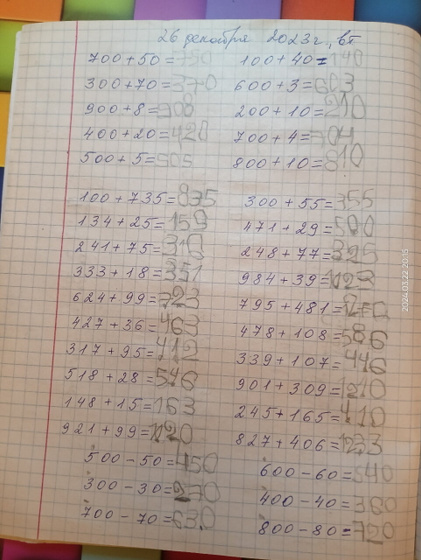 26 декабря 2023г., вт
700+50=750 100+40=140
300+70=370 600+3=603
900+8=908 200+10=210
400+20=420 700+4=704
500+5=505 800+10=810
100+735=835 300+55=355
134+25=159 471+29=500
241+75=316 248+77=325
333+18=351 984+39=1123
624+99=723 795+481=
427+36=463 478+108=586
317+95=412 339+107=446
518+28=546 901+309=1210
148+15=163 245+165=410
921+99=1120 827+406=1233
500-50=450 600-60=540
300-30=270 400-40=360
700-70=630 800-80=720
2024.03.22 20:15